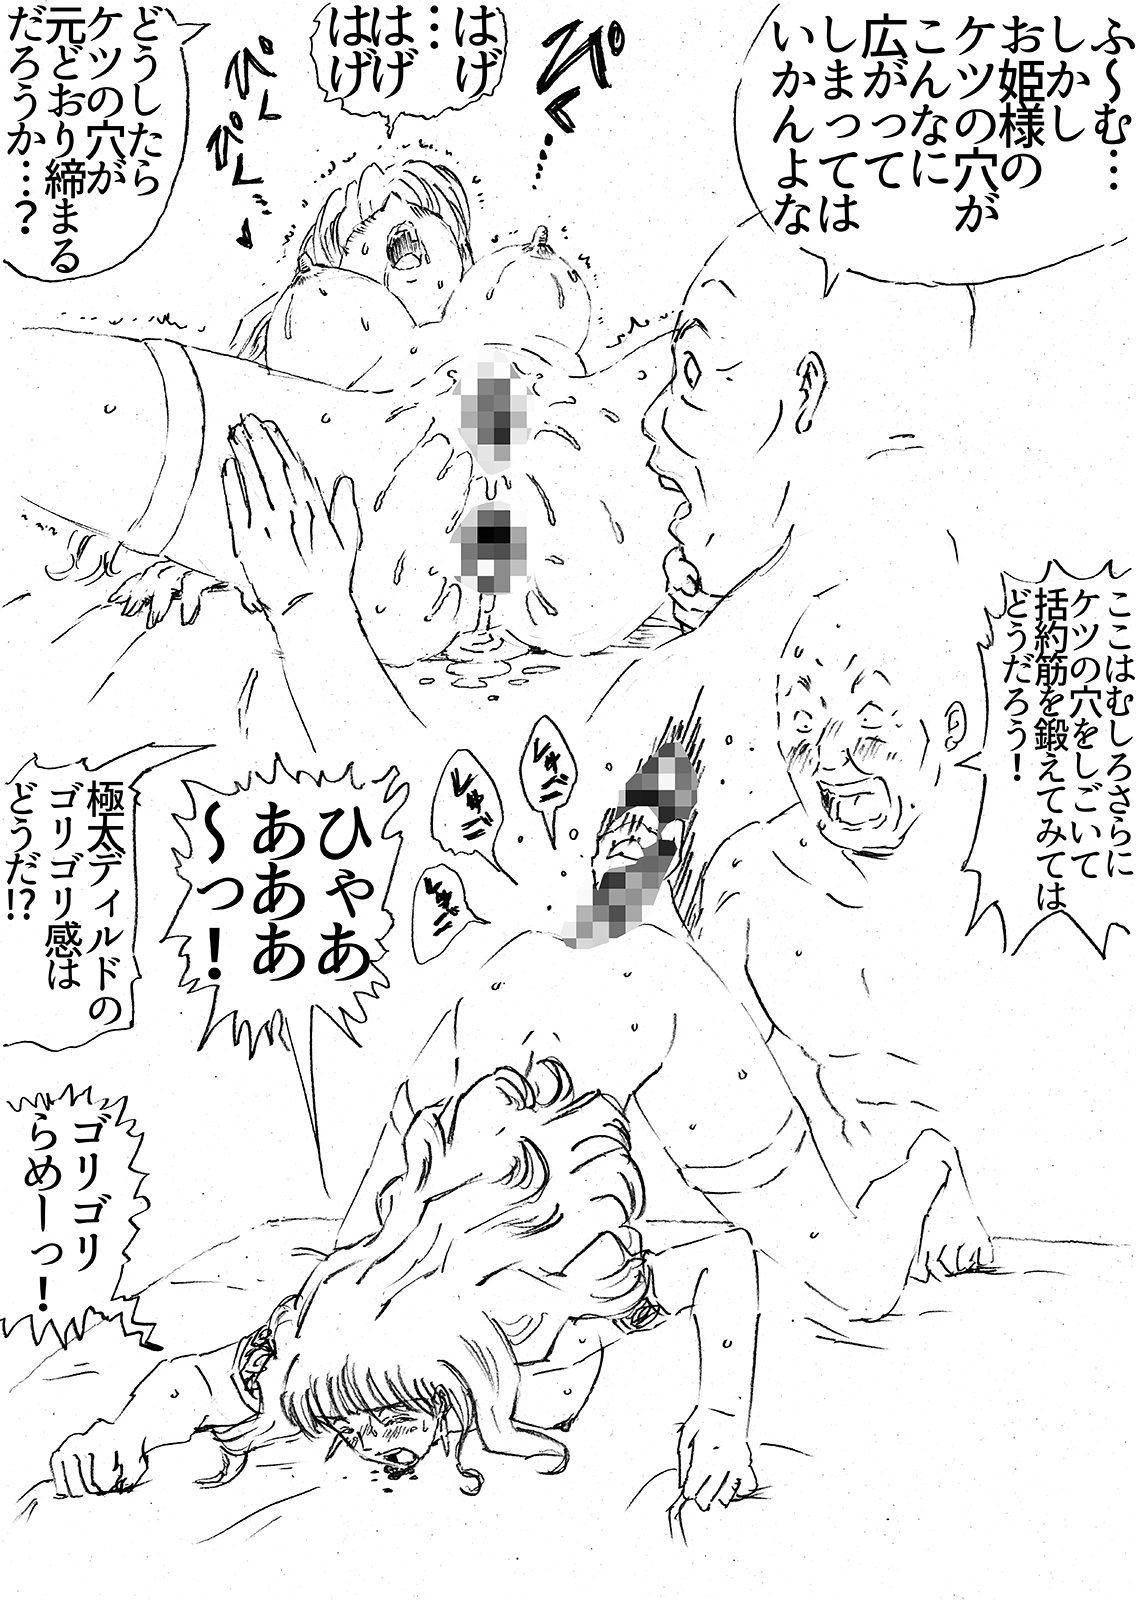 ふ～む…
しかし
お姫様の
ケツの穴が
こんなに
広がって
しまっては
いかんよな
ビクッ…
はげ
…
はげ
はげ
どうしたら
ケツの穴が
元どおり締まる
だろうか…？
ここはむしろさらに
ケツの穴をしごいて
括約筋を鍛えてみては
どうだろう！
ひゃあ
あああ
～っ！
極太ディルドの
ゴリゴリ感は
どうだ!?
ゴリゴリ
らめーっ！